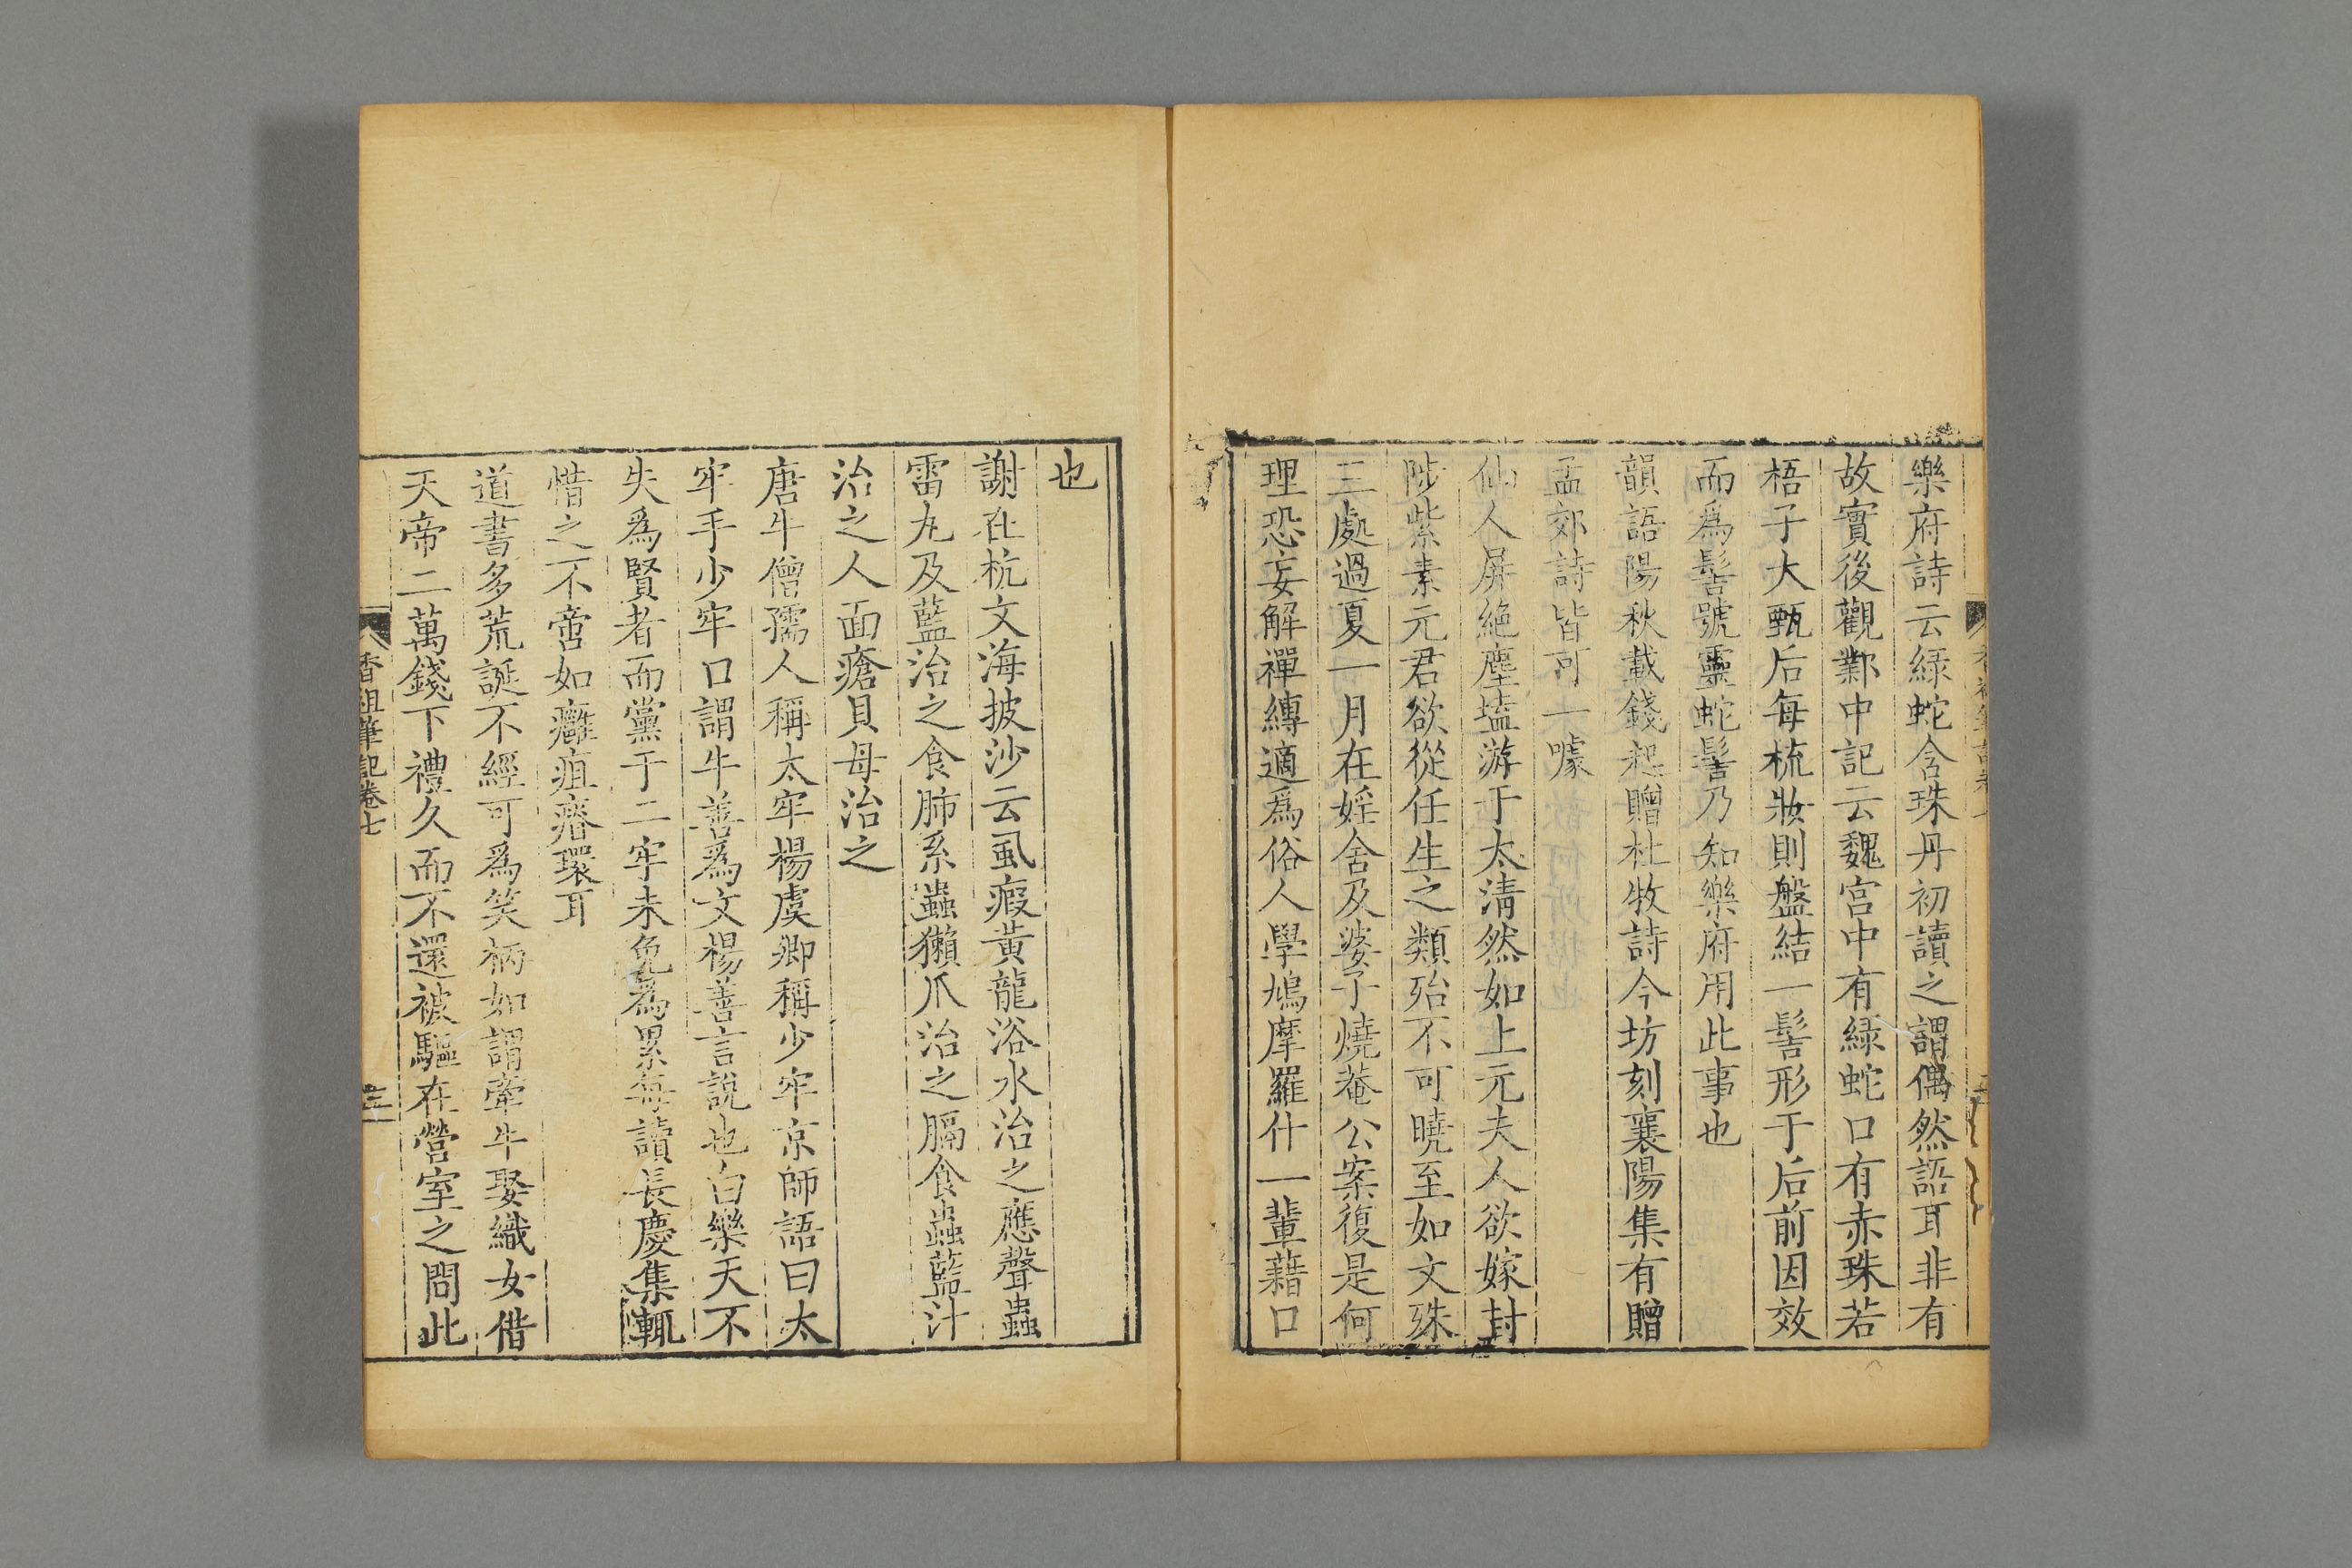 樂府詩云綠蛇含珠丹初讀之謂偶然語耳非有
故實後觀鄴中記云魏宮中有綠蛇口有赤珠若
梧子大甄后每梳妝則盤結一髻形于后前因效
而爲髻號靈蛇髻乃知樂府用此事也
韻語陽秋載錢起贈杜牧詩今坊刻襄陽集有贈
孟郊詩皆可一噱
仙人屏絶塵壒游于太淸然如上元夫人欲嫁封
陟紫素元君欲從任生之類殆不可曉至如文殊
三處過夏一月在婬舍及婆子燒菴公案復是何
理恐妄解禪縛適爲俗人學鳩摩羅什一輩藉口
也
謝在杭文海披沙云虱瘕黃龍浴水治之應聲蟲
雷丸及藍治之食肺系蟲獺爪治之膈食蟲藍汁
治之人面瘡貝母治之
唐牛僧孺人稱太牢楊虞卿稱少牢京師語曰太
牢手少牢口謂牛善爲文楊善言說也白樂天不
失爲賢者而黨于二牢未免爲累每讀長慶集輒
惜之不啻如癰疽瘠環耳
道書多荒誕不經可爲笑柄如謂牽牛娶織女借
天帝二萬錢下禮久而不還被驅在營室之間此
香祖筆記卷七